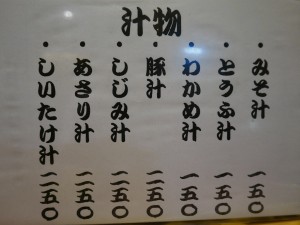 汁物
・みそ汁 一五〇
・とうふ汁 一五〇
・わかめ汁 一五〇
・豚汁 二五〇
・しじみ汁 二五〇
・あさり汁 二五〇
・しいたけ汁 二五〇